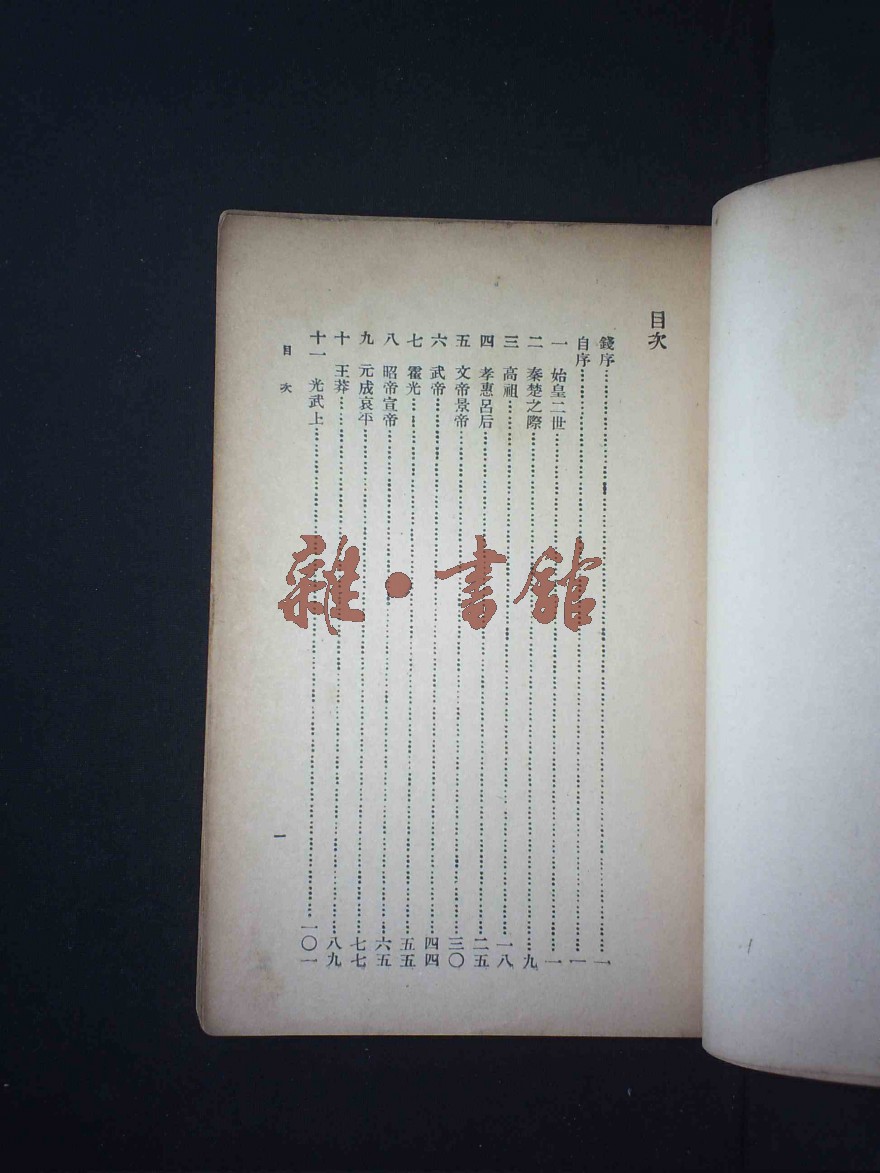 目次
錢序……一
自序……一
一　始皇二世……一
二　秦楚之際……九
三　高祖……一八
四　孝惠呂后……二五
五　文帝景帝……三〇
六　武帝……四四
七　霍光……五五
八　昭帝宣帝……六五
九　元成哀平……七七
十　王莽……八九
十一　光武上……一〇一
目次
一
雜·書館